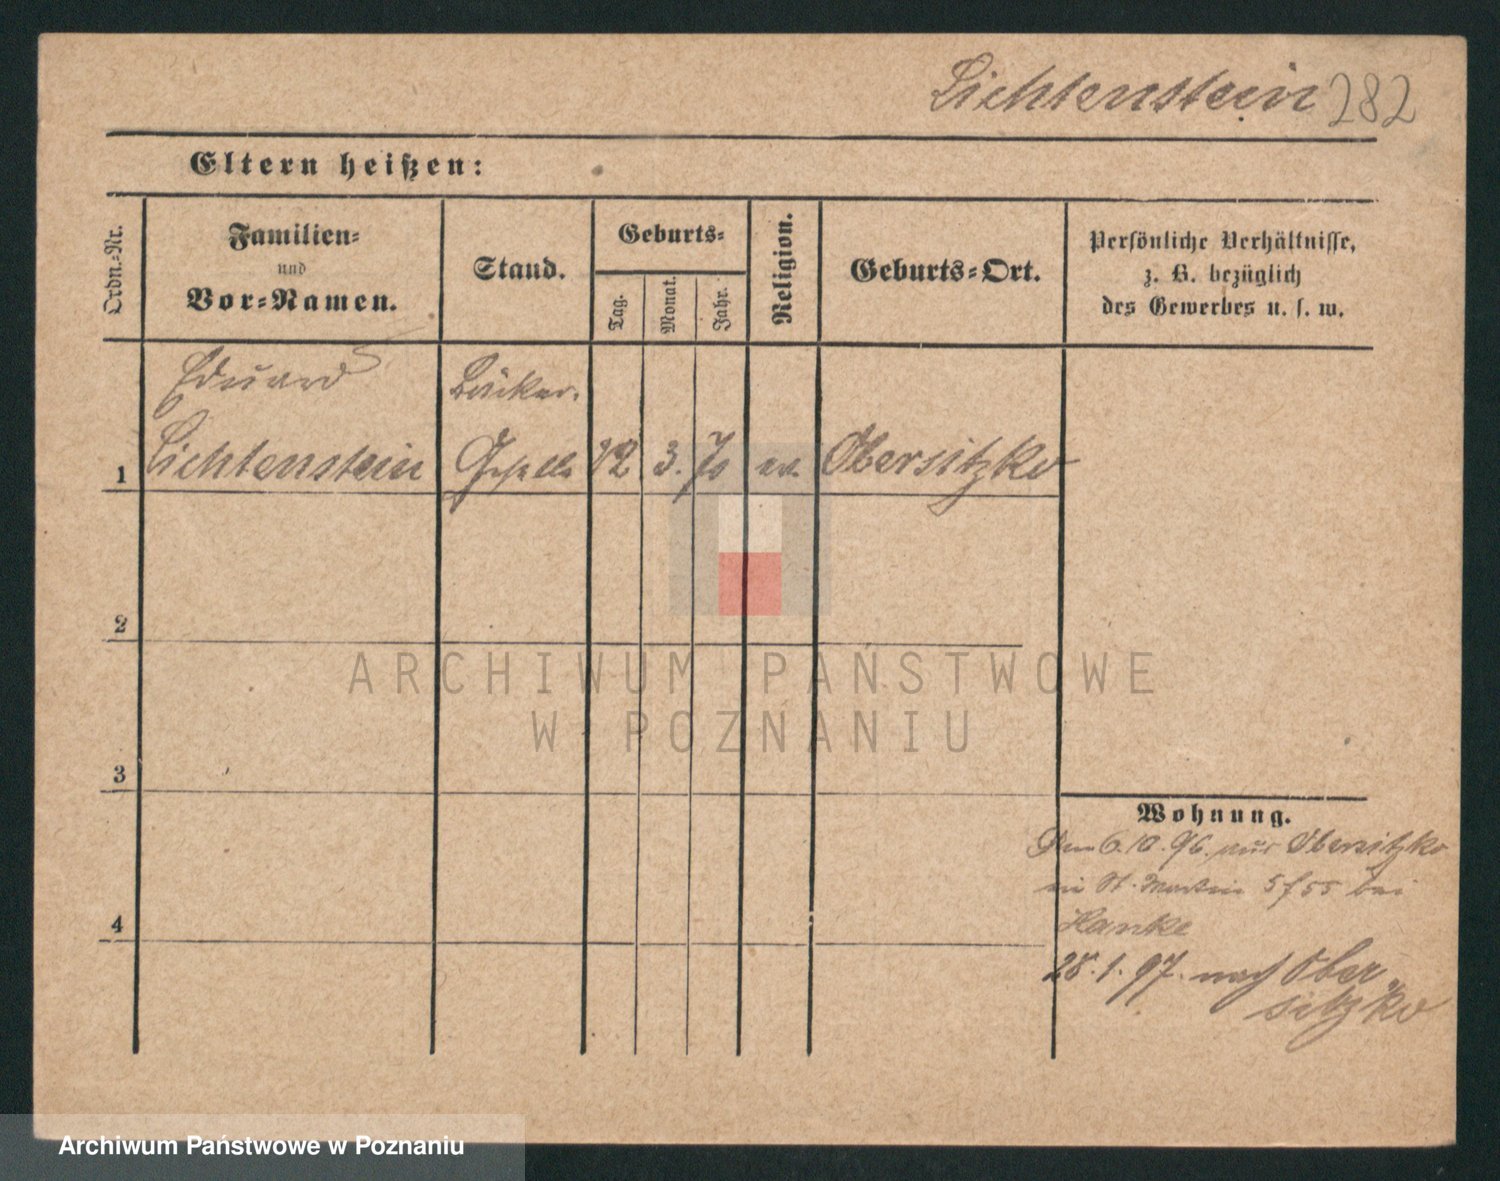 Lichtenstein 282
Eltern heißen:
Ordn.-Nr.
Familien-
und
Vor-Namen.
Stand.
Geburts-
Tag.
Monat.
Jahr.
Religion.
Geburts-Ort.
Persönliche Verhältnisse,
z. B. bezüglich
des Gewerbes u. s. w.
Eduard Bäcker-
1 Lichtenstein Geselle 12 3. 70 ev. Obersitzko
2
ARCHIWUM PAŃSTWOWE
W POZNANIU
3
4
Wohnung.
Den 6.10.96. aus Obersitzko
in St. Martin 5/55 bei
Hanke
28.1.97. nach Ober
sitzko
Archiwum Państwowe w Poznaniu